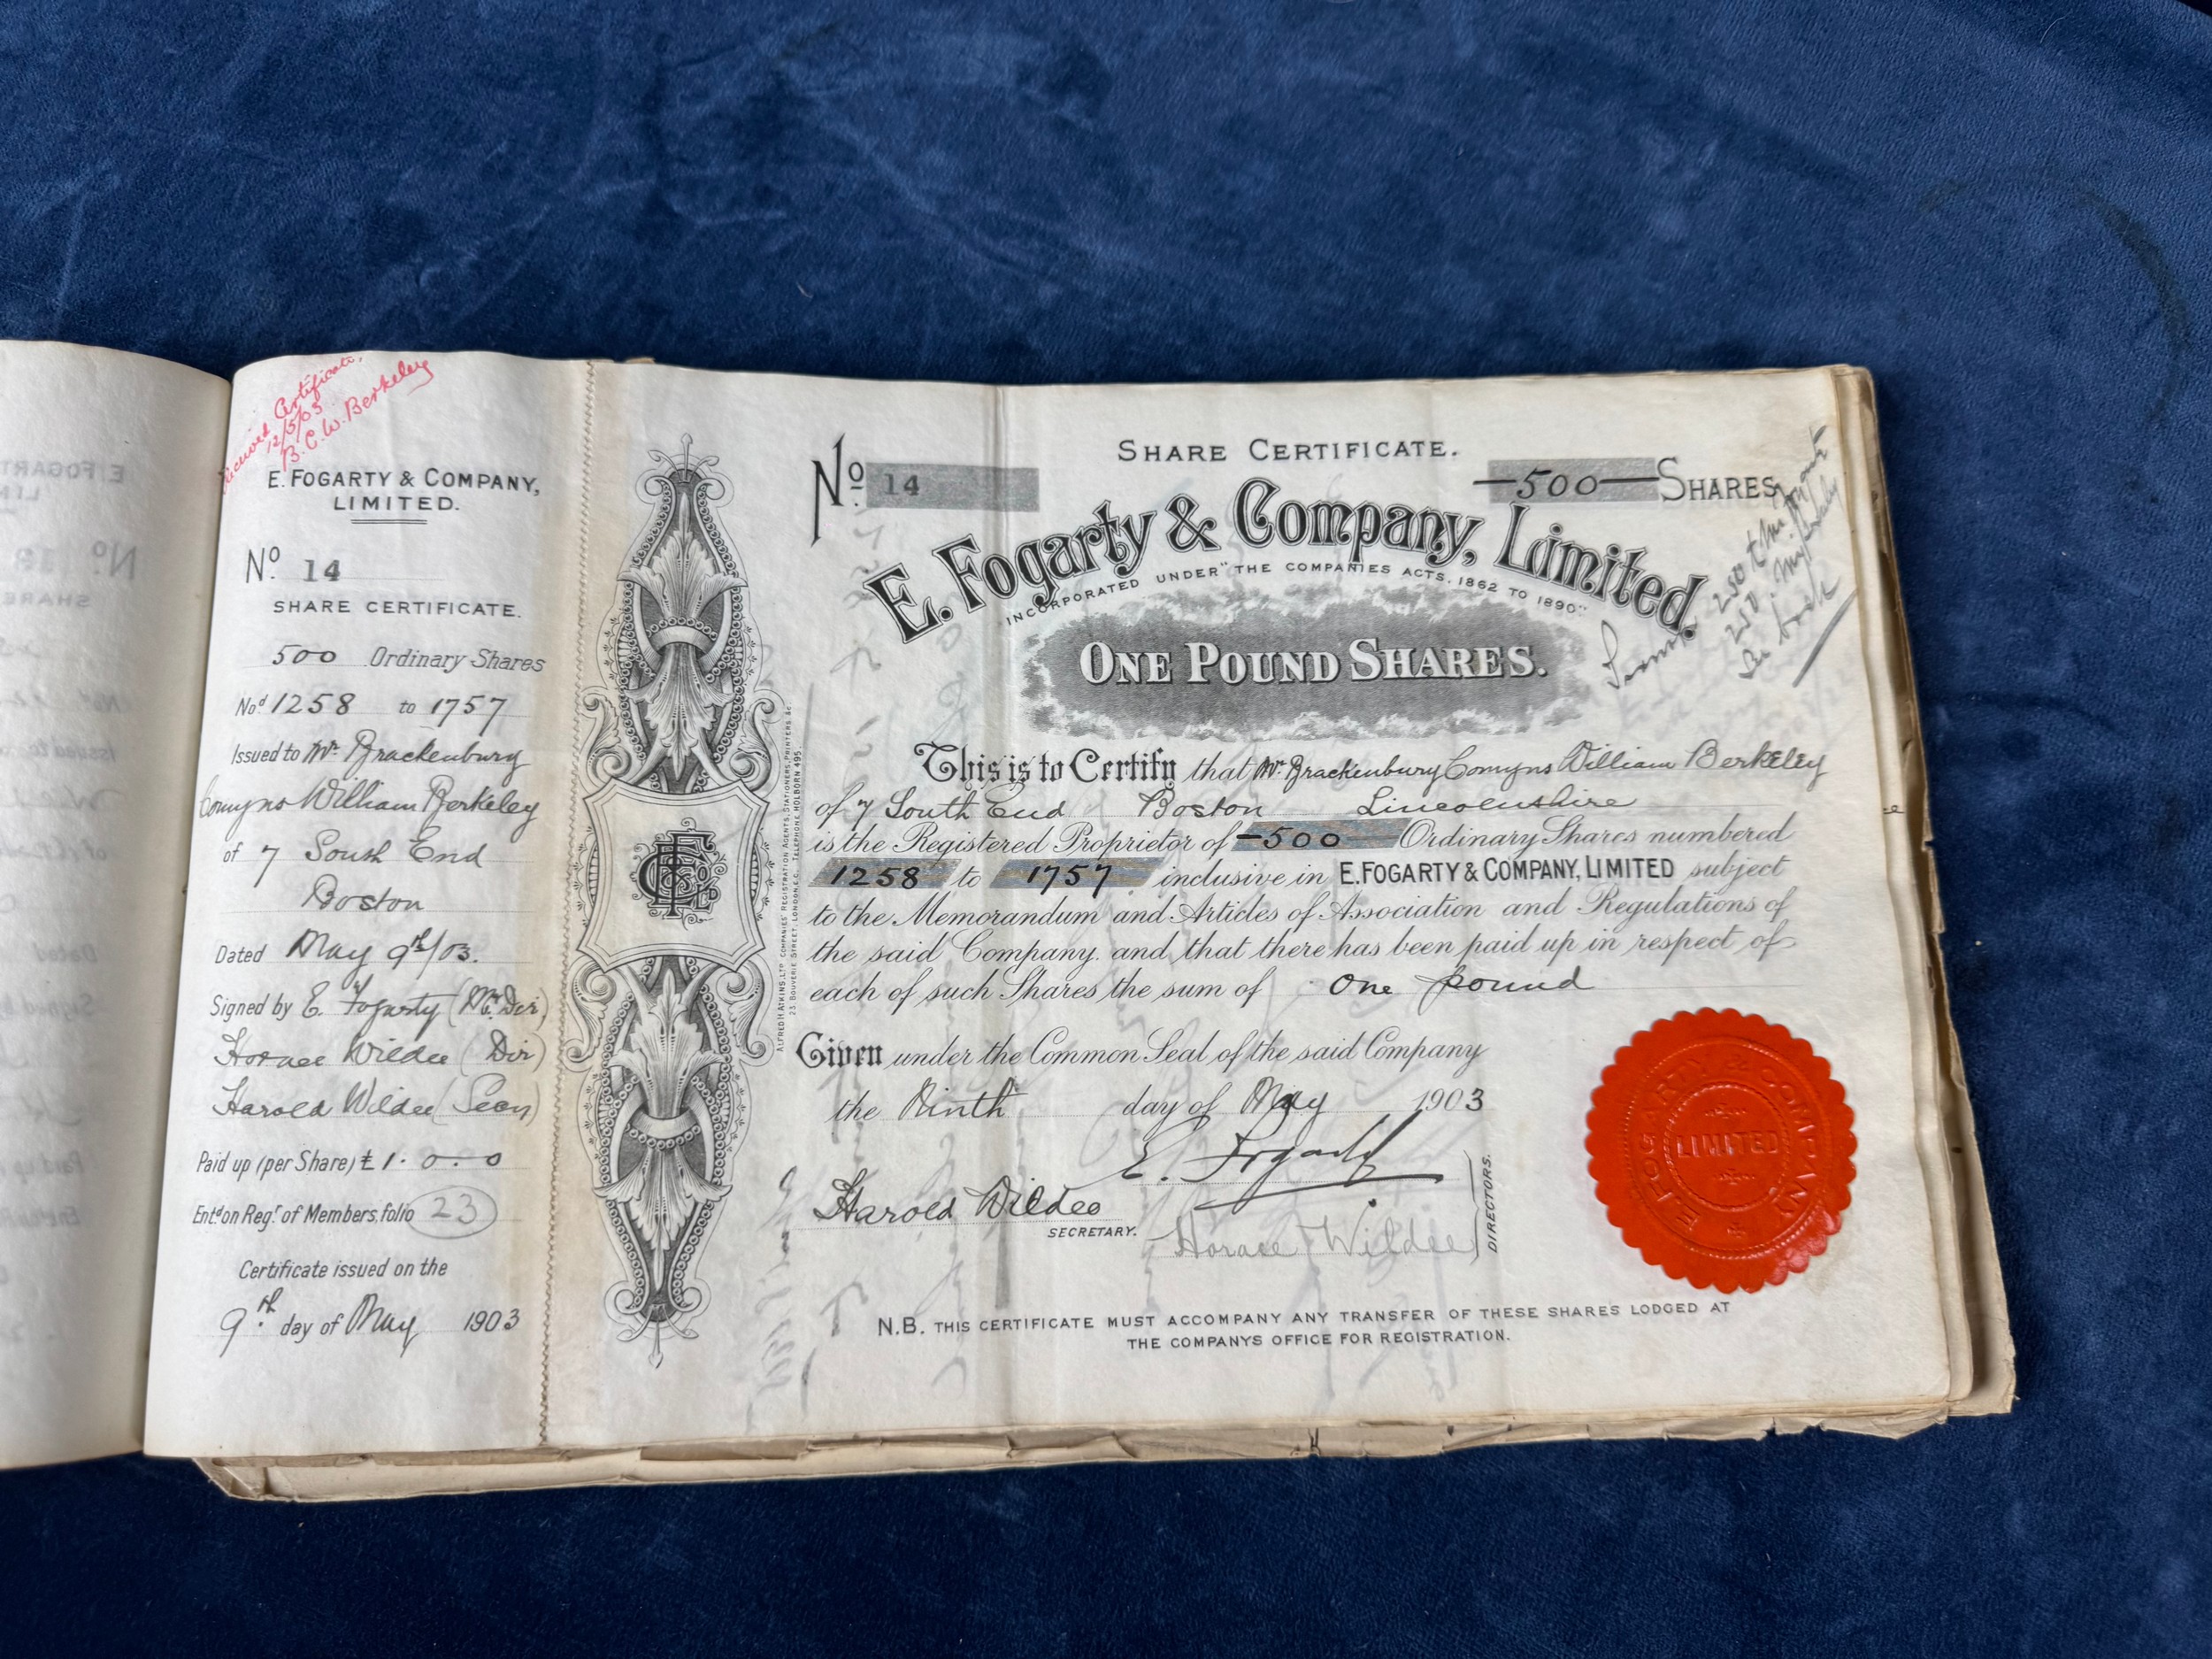 Received Certificate,
12/5/03
B.C.W. Berkeley
E. FOGARTY & COMPANY,
LIMITED.
No. 14
SHARE CERTIFICATE.
500 Ordinary Shares
Nod 1258 to 1757
Issued to Mr. Brackenbury
Comyns William Berkeley
of 7 South End
Boston
Dated May 9th/03.
Signed by E. Fogarty (Mg. Dir)
Horace Wildee (Dir)
Harold Wildee (Secy)
Paid up (per Share) £ 1. 0. 0
Entd on Regr of Members, folio 23
Certificate issued on the
9th day of May 1903
ALFRED H ATKINS, LTD COMPANIES' REGISTRATION AGENTS, STATIONERS, PRINTERS &c.
23, BOUVERIE STREET, LONDON, E.C. TELEPHONE HOLBORN 495.
SHARE CERTIFICATE.
No. 14
—500— SHARES
E. Fogarty & Company, Limited.
INCORPORATED UNDER "THE COMPANIES ACTS, 1862 TO 1890"
ONE POUND SHARES.
250
250
This is to Certify that Mr. Brackenbury Comyns William Berkeley
of 7 South End Boston Lincolnshire
is the Registered Proprietor of —500— Ordinary Shares numbered
1258 to 1757 inclusive in E. FOGARTY & COMPANY, LIMITED subject
to the Memorandum and Articles of Association and Regulations of
the said Company, and that there has been paid up in respect of
each of such Shares the sum of One pound
Given under the Common Seal of the said Company
the Ninth day of May 1903
E. Fogarty
Harold Wildee
SECRETARY.
Horace Wildee
DIRECTORS.
E FOGARTY & COMPANY
LIMITED
N.B. THIS CERTIFICATE MUST ACCOMPANY ANY TRANSFER OF THESE SHARES LODGED AT
THE COMPANYS OFFICE FOR REGISTRATION.